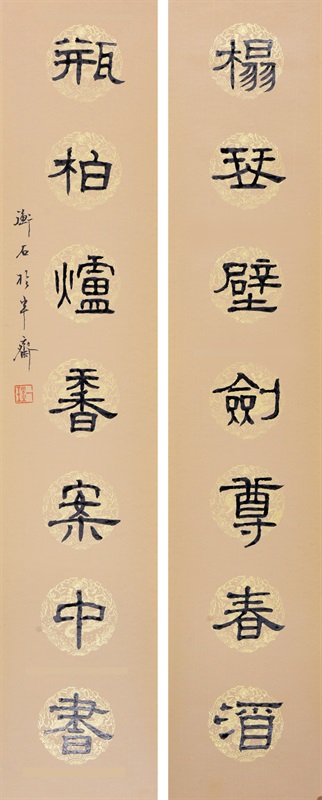 榻琴壁劍尊春酒
瓶柏爐香案中書
衡石於半齋